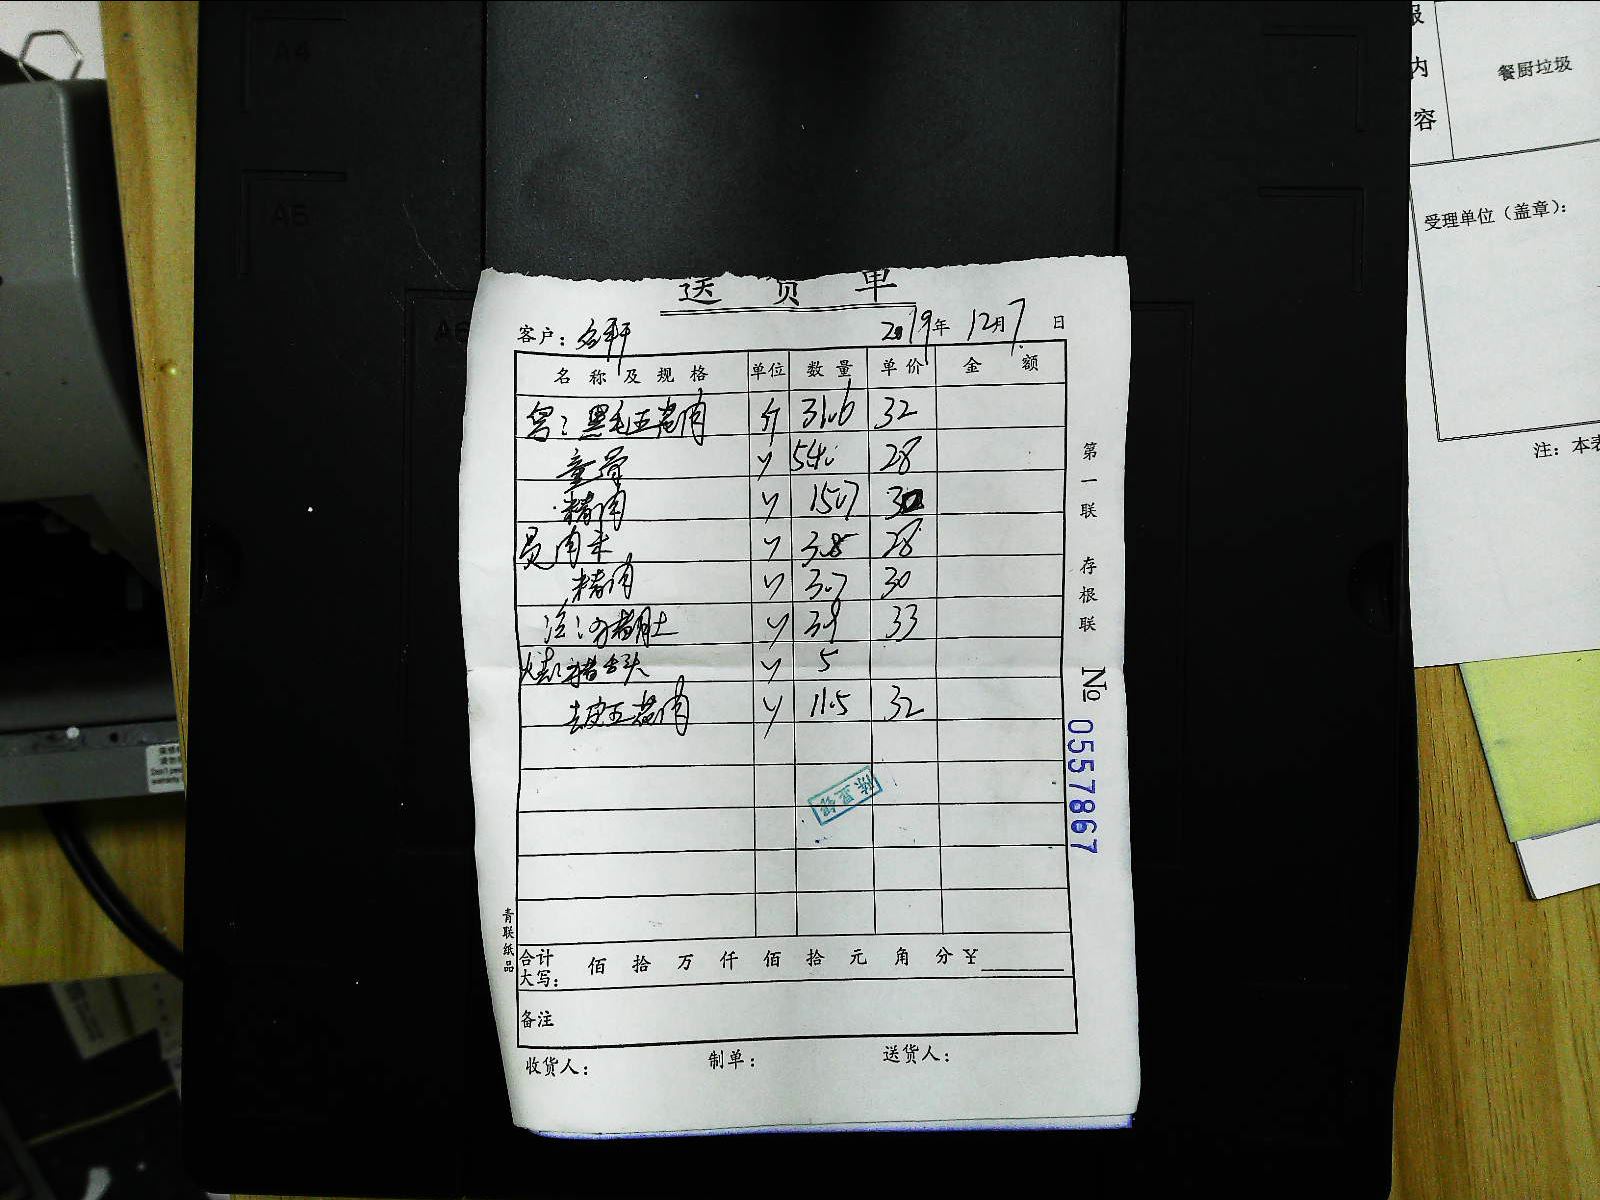 A4
A5
A6
服
内
容
餐厨垃圾
受理单位（盖章）：
注：本表
送货单
客户：名轩 2019年 12月7日
名称及规格 单位 数量 单价 金额
黑毛五花肉 斤 31.6 32
童骨 〃 28
精肉 〃 15.7
员肉末 〃 3.8 28
精肉 〃 3.7 30
猪肚 〃 3.9 33
猪舌头 〃 5
去皮五花肉 〃 11.5 32
合计
大写： 佰 拾 万 仟 佰 拾 元 角 分 ¥
备注
收货人： 制单： 送货人：
第一联 存根联
№ 0557867
青联纸品